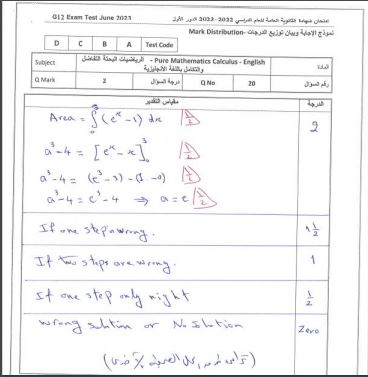 G12 Exam Test June 2023
امتحان شهادة الثانوية العامة للعام الدراسي 2022-2023 الدور الأول
نموذج الإجابة وبيان توزيع الدرجات -Mark Distribution
D C B A Test Code
Subject الرياضيات البحتة التفاضل - Pure Mathematics Calculus - English والتكامل باللغة الانجليزية المادة
Q Mark 2 درجة السؤال Q No 20 رقم السؤال
مقياس التقدير الدرجة
Area = ∫₀³ (eˣ - 1) dx 1/2 2
a³-4 = [eˣ - x]₀³ 1/2
a³-4 = (e³-3) - (1-0) 1/2
a³-4 = e³-4 ⇒ a = e 1/2
If one step wrong. 1 1/2
If two steps are wrong. 1
If one step only right 1/2
wrong solution or No Solution Zero